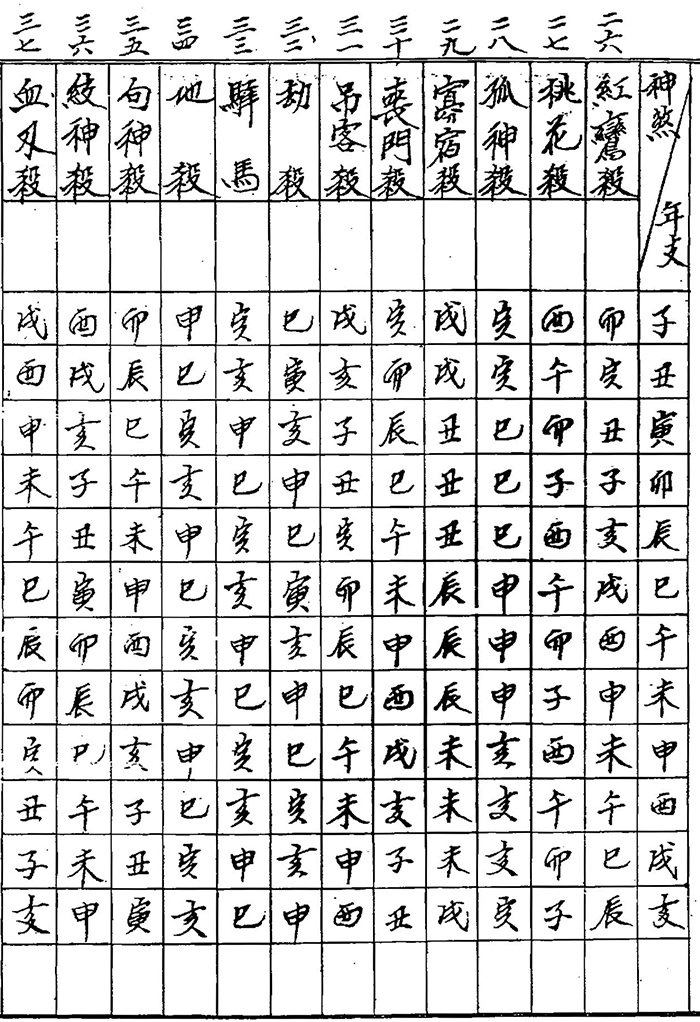 神煞 年支 子丑寅卯辰巳午未申酉戌亥
二六 紅鸞殺 卯寅丑子亥戌酉申未午巳辰
二七 桃花殺 酉午卯子酉午卯子酉午卯子
二八 孤神殺 寅寅巳巳巳申申申亥亥亥寅
二九 寡宿殺 戌戌丑丑丑辰辰辰未未未戌
三十 喪門殺 寅卯辰巳午未申酉戌亥子丑
三一 吊客殺 戌亥子丑寅卯辰巳午未申酉
三二 劫殺 巳寅亥申巳寅亥申巳寅亥申
三三 驛馬 寅亥申巳寅亥申巳寅亥申巳
三四 地殺 申巳寅亥申巳寅亥申巳寅亥
三五 句神殺 卯辰巳午未申酉戌亥子丑寅
三六 絞神殺 酉戌亥子丑寅卯辰巳午未申
三七 血刃殺 戌酉申未午巳辰卯寅丑子亥